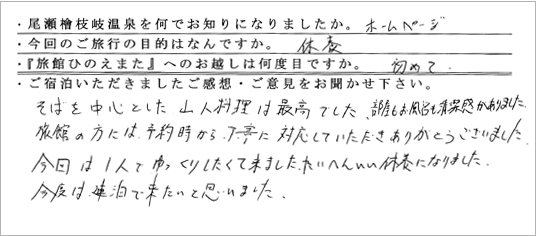 ・尾瀬檜枝岐温泉を何でお知りになりましたか。 ホームページ
・今回のご旅行の目的はなんですか。 休養
・『旅館ひのえまた』へのお越しは何度目ですか。 初めて.
・ご宿泊いただきましたご感想・ご意見をお聞かせ下さい。
そばを中心とした山人料理は最高でした。部屋もお風呂も清潔感がありました。
旅館の方には、予約時から丁寧に対応していただきありがとうございました。
今回は1人でゆっくりしたくて来ました。たいへんいい休養になりました。
今度は、連泊で来たいと思いました。